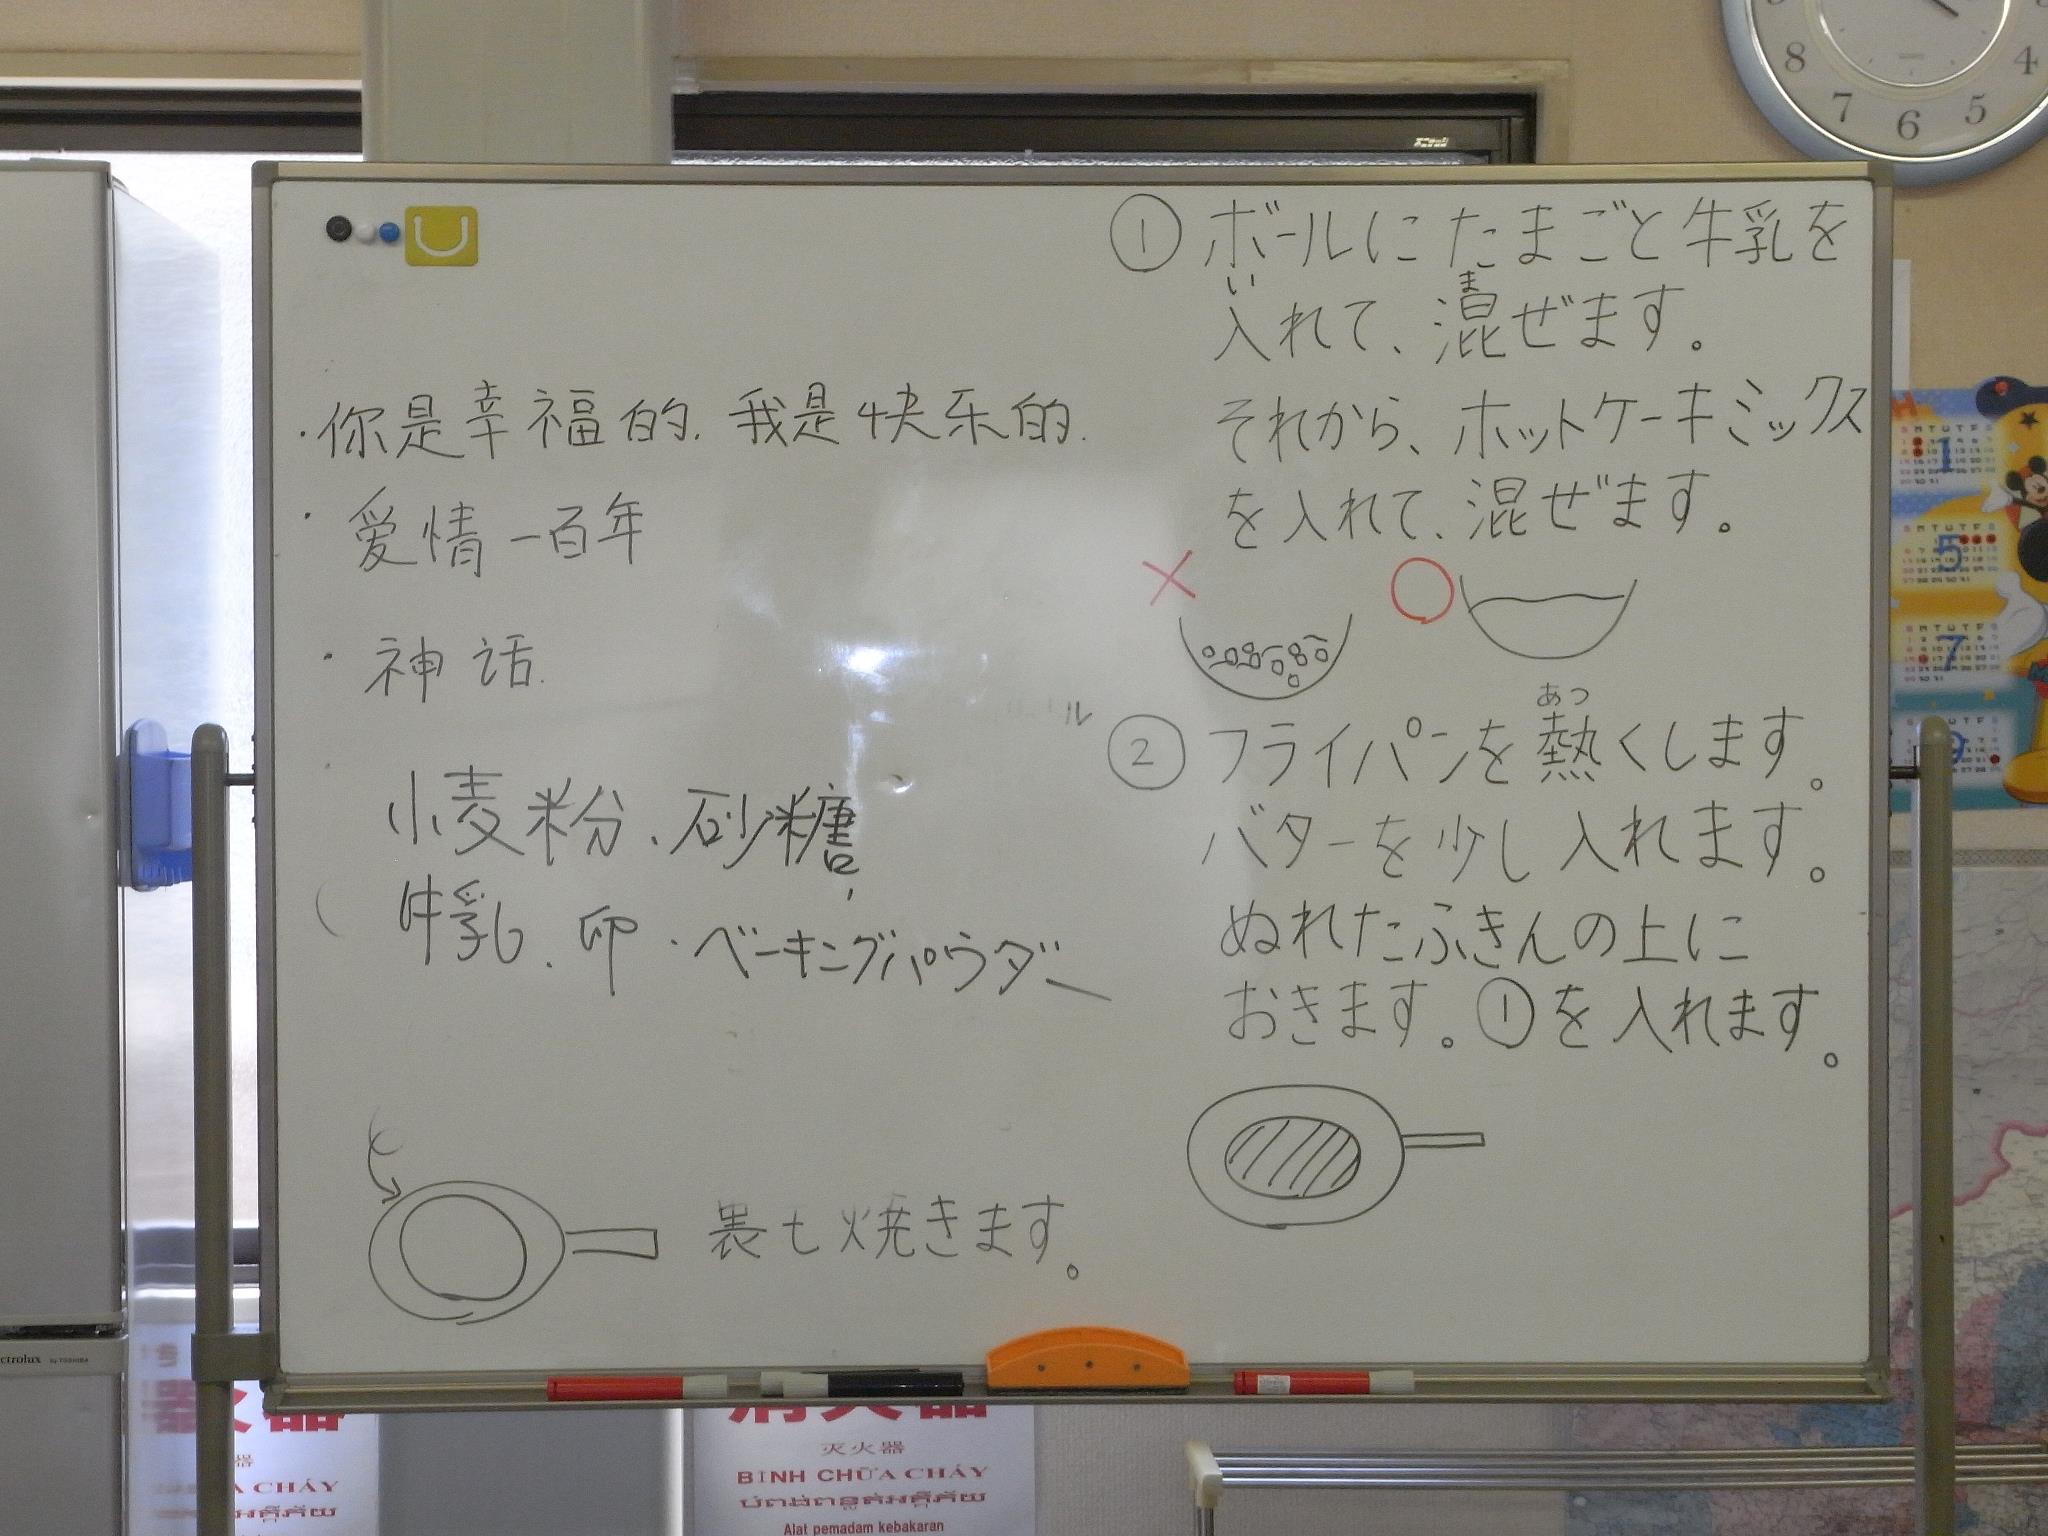 ・你是幸福的.我是快乐的.
・爱情一百年
・神话.
小麦粉、砂糖,
牛乳、卵・ベーキングパウダー
裏も焼きます。
① ボールにたまごと牛乳を
い ま
入れて、混ぜます。
それから、ホットケーキミックス
を入れて、混ぜます。
あつ
② フライパンを熱くします。
バターを少し入れます。
ぬれたふきんの上に
おきます。①を入れます。
8 7 6 5 4
1
5
7
9
ctrolux by TOSHIBA
器
A CHÁY
消火器
灭火器
BÌNH CHỮA CHÁY
Alat pemadam kebakaran